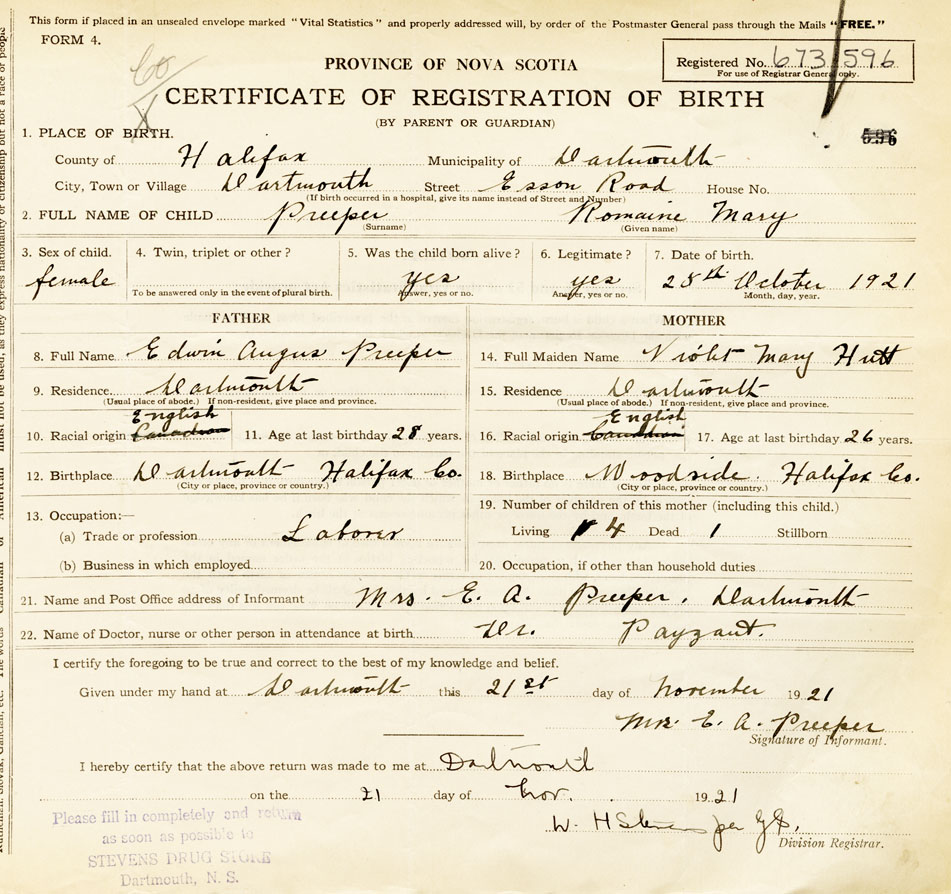 This form if placed in an unsealed envelope marked "Vital Statistics" and properly addressed will, by order of the Postmaster General pass through the Mails "FREE."
FORM 4.
Registered No. 673596
For use of Registrar General only.
PROVINCE OF NOVA SCOTIA
CERTIFICATE OF REGISTRATION OF BIRTH
(BY PARENT OR GUARDIAN)
596
1. PLACE OF BIRTH.
County of Halifax Municipality of Dartmouth
City, Town or Village Dartmouth Street Esson Road House No.
(If birth occurred in a hospital, give its name instead of Street and Number)
2. FULL NAME OF CHILD Preeper Romaine Mary
(Surname) (Given name)
3. Sex of child. 4. Twin, triplet or other? 5. Was the child born alive? 6. Legitimate? 7. Date of birth.
female yes yes 28th October 1921
To be answered only in the event of plural birth. Answer, yes or no. Answer, yes or no. Month, day, year.
FATHER MOTHER
8. Full Name Edwin Angus Preeper 14. Full Maiden Name Violet Mary Hutt
9. Residence Dartmouth 15. Residence Dartmouth
(Usual place of abode.) If non-resident, give place and province. (Usual place of abode.) If non-resident, give place and province.
English English
10. Racial origin Canadian 11. Age at last birthday 28 years. 16. Racial origin Canadian 17. Age at last birthday 26 years.
12. Birthplace Dartmouth Halifax Co. 18. Birthplace Woodside. Halifax Co.
(City or place, province or country.) (City or place, province or country.)
13. Occupation:— 19. Number of children of this mother (including this child.)
(a) Trade or profession Laborer Living 4 Dead 1 Stillborn
(b) Business in which employed 20. Occupation, if other than household duties
21. Name and Post Office address of Informant Mrs. E. A. Preeper, Dartmouth
22. Name of Doctor, nurse or other person in attendance at birth Dr. Payzant.
I certify the foregoing to be true and correct to the best of my knowledge and belief.
Given under my hand at Dartmouth this 21st day of November 1921
Mrs. E. A. Preeper
Signature of Informant.
I hereby certify that the above return was made to me at Dartmouth
on the 21 day of Nov. 1921
W. H Stevens per
Division Registrar.
Please fill in completely and return
as soon as possible to
STEVENS DRUG STORE
Dartmouth, N. S.